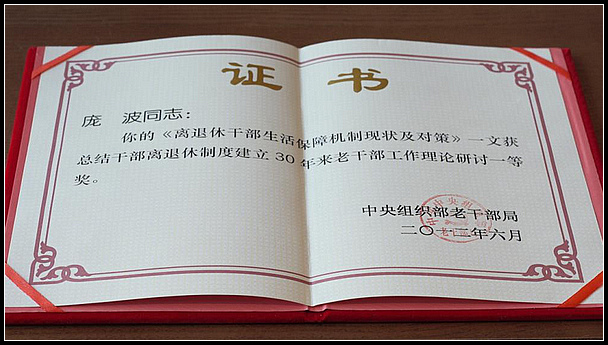 证书
庞 波同志：
你的《离退休干部生活保障机制现状及对策》一文获
总结干部离退休制度建立30年来老干部工作理论研讨一等
奖。
中央组织部老干部局
二〇一二年六月